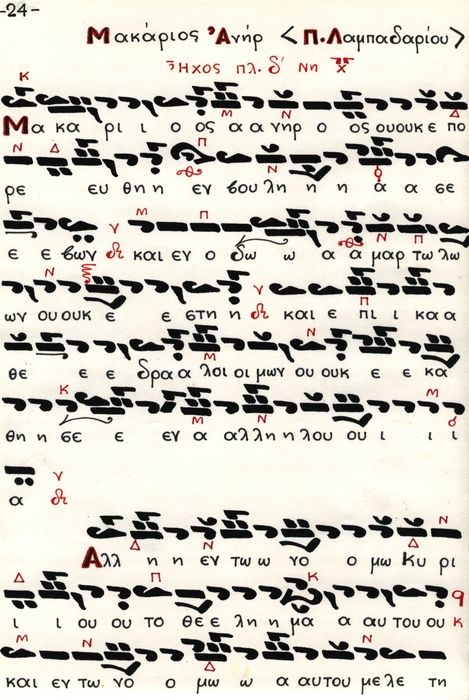 -24-
Μακάριος Ἀνήρ < Π. Λαμπαδαρίου >
Ἦχος πλ. δ' Νη
Μα κα ρι ι ο ος α α νηρ ο ος ου ουκ ε πο
ρε ευ θη η εν βου λη η η α α σε
ε ε βων και εν ο δω ω α α μαρ τω λω
ων ου ουκ ε ε στη η και ε πι ι κα α
θε ε ε δρα α λοι οι μων ου ουκ ε ε κα
θη η σε ε εν α αλ λη η λου ου ι ι ι
α
Αλλ η η εν τω ω νο ο μω Κυ ρι
ι ι ου ου το θε ε λη η μα α αυ του ου
και εν τω νο ο μω ω α αυτου με λε τη